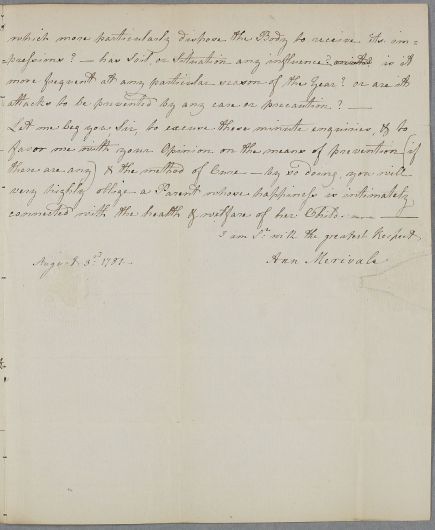 which more particularly dispose the Body to receive its im-
pressions? — has Soil, or Situation any influence? is it
more frequent at any particular season of the Year? or are it
attacks to be prevented by any care or precaution? —
Let me beg you Sir, to excuse these minute enquiries, & to
favor me with your Opinion on the means of prevention (if
there are any) & the method of Cure — by so doing, you will
very highly oblige a Parent whose happiness is intimately
connected with the health & welfare of her Child. —
I am Sr. with the greatest Respect
August 3rd. 1781.
Ann Merivale